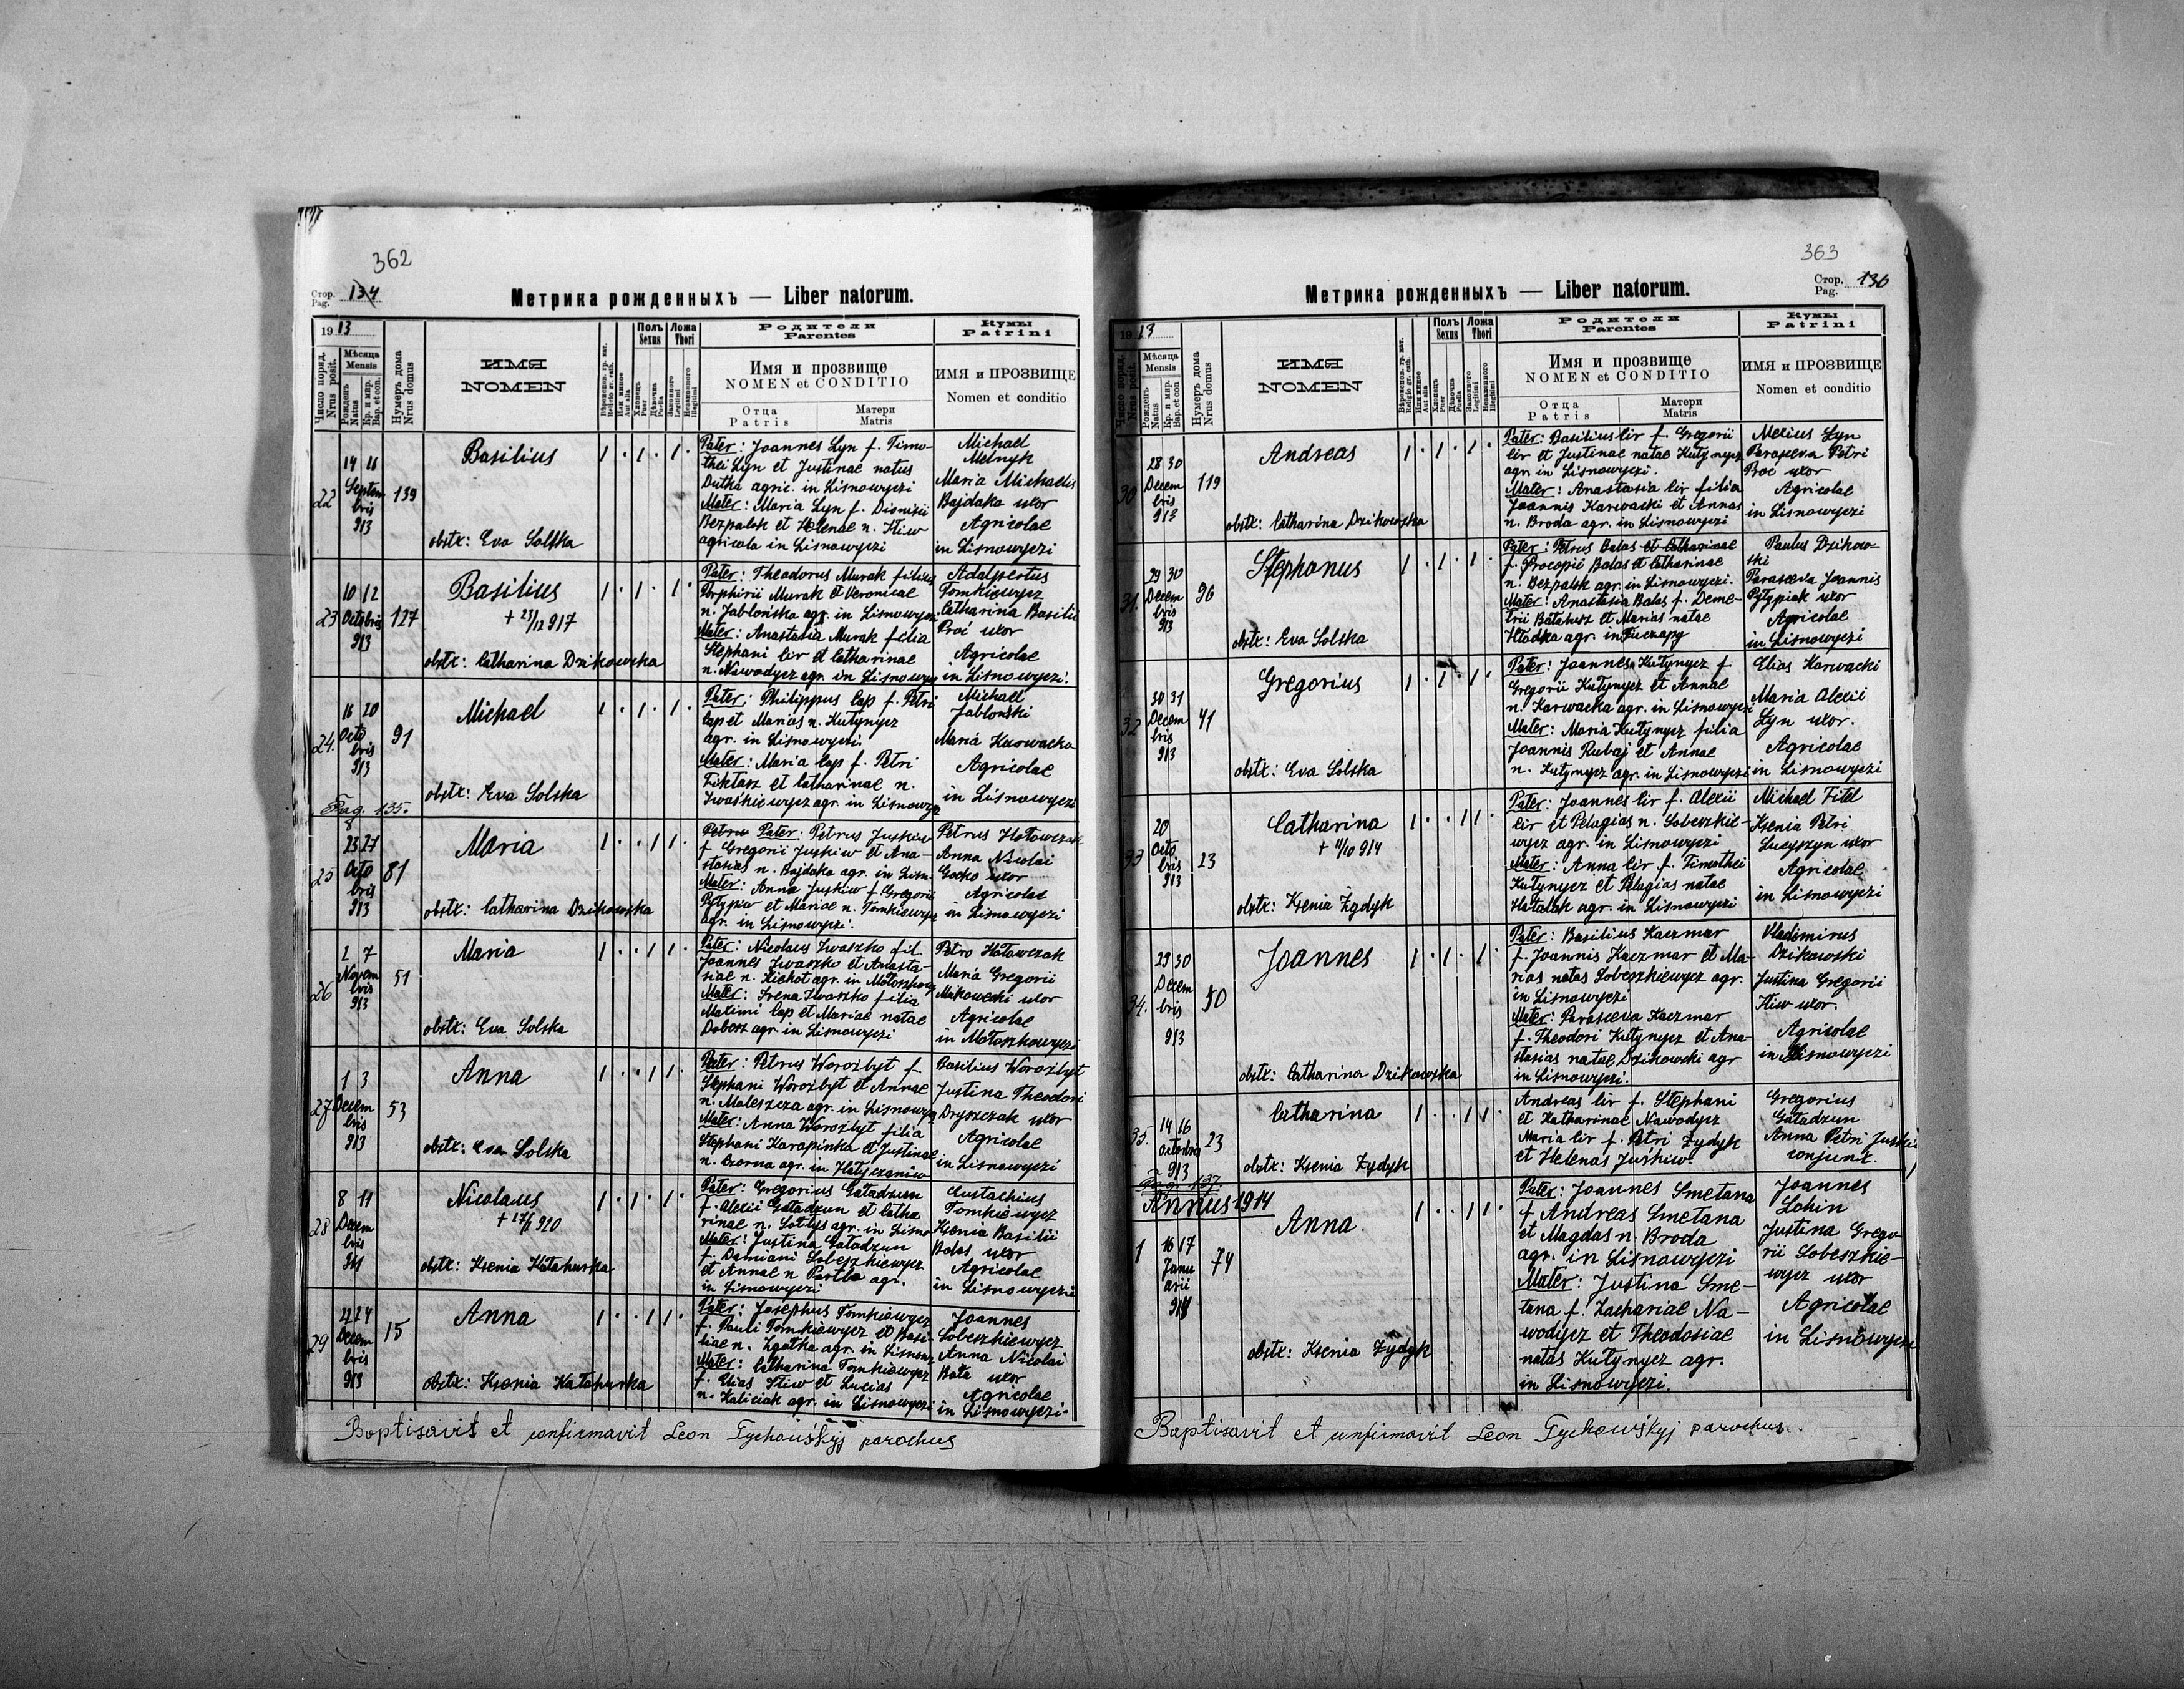 362
Стор.
Pag. 134
Метрика рожденныхъ — Liber natorum.
1913
Число поряд.
Nrus posit.
Мѣсяца
Mensis
Рожденъ
Natus
Кр. и мир.
Bap. et con.
Нумеръ дома
Nrus domus
ИМЯ
NOMEN
Religio gr. cath.
Или инное
Aut alia
Полъ
Sexus
Хлопецъ
Puer
Дѣвочка
Puella
Ложа
Thori
Законного
Legitimi
Незаконного
Illegitimi
Родители
Parentes
Имя и прозвище
NOMEN et CONDITIO
Отца
Patris
Матери
Matris
Кумы
Patrini
ИМЯ и ПРОЗВИЩЕ
Nomen et conditio
22
14 16
Septem
bris
913
139
Basilius
obstx: Eva Solska
1 . 1 . 1 .
Pater: Joannes Lyn f. Timo-
thei Lyn et Justinae natus
Dutka agric. in Lisnowyczi
Mater: Maria Lyn f. Dionisii
Bezpalok et Helenae n. Kiiw
agricola in Lisnowyczi
Michael
Melnyk
Maria Michaelis
Bajdaka uxor
Agricolae
in Lisnowyczi
23
10 12
Octobris
913
127
Basilius
+ 23/12 917
obstx: Catharina Dzikowska
1 . 1 . 1 .
Pater: Theodorus Murak filius
Porphirii Murak et Veronicae
n. Jablońska agr. in Lisnowyczi
Mater: Anastasia Murak filia
Stephani Cir et Catharinae
n. Nawodycz agr. in Lisnowycz
Adalpertus
Tomkiewycz
Catharina Basilii
Proć uxor
Agricolae
in Lisnowyczi.
24.
16 20
Octo
bris
913
91
Michael
obstx: Eva Solska
1 . 1 . 1 .
Pater: Philippus Cap f. Petri
Cap et Marias n. Kutynycz
agr. in Lisnowyczi.
Mater: Maria Cap f. Petri
Fiktasz et Catharinae n.
Iwaśkiewycz agr. in Lisnowycz
Michael
Jabloński
Maria Karwacka
Agricolae
in Lisnowyczi
Pag. 135.
25
23 27
Octo
bris
913
81
Maria
obstx: Catharina Dzikowska
1 . . 1 1 .
Petrus Pater: Petrus Juśkiw
f. Gregorii Juśkiw et Ana-
stasias n. Bajdaka agr. in Lisn.
Mater: Anna Juśkiw f. Gregorii
Pytypiw et Mariae n. Tomkiewycz
agr. in Lisnowyczi.
Petrus Hołowczak
Anna Nicolai
Gocko uxor
Agricolae
in Lisnowyczi
26
2 7
Novem
bris
913
51
Maria
obstx: Eva Solska
1 . . 1 1 .
Pater: Nicolaus Iwaszko fil.
Joannes Iwaszko et Anasta-
siae n. Kichot agr. in Mołoszkowycz
Mater: Irena Iwaszko filia
Maximi Cap et Mariae natae
Dobosz agr. in Lisnowyczi
Petro Hołowczak
Maria Gregorii
Makowecki uxor
Agricolae
in Mołoszkowyczi
27
1 3
Decem
bris
913
53
Anna
obstx: Eva Solska
1 . . 1 1 .
Pater: Petrus Worożbyt f.
Stephani Worożbyt et Annae
n. Maleszcza agr. in Lisnowycz
Mater: Anna Worożbyt filia
Stephani Karapinka et Justinae
n. Czorna agr. in Hołyczaniw
Basilius Worożbyt
Justina Theodori
Dryszczak uxor
Agricolae
in Lisnowyczi
28
8 11
Decem
bris
911
Nicolaus
+ 17/1 920
obstx: Ksenia Katahurka
1 . 1 . 1 .
Pater: Gregorius Gaładzun
f. Alexii Gaładzun et Catha
rinae n. Soltys agr. in Lisno
Mater: Justina Gaładzun
f. Damiani Sobeszkiewycz
et Annae n. Partła agr.
in Lisnowyczi
Eustachius
Tomkiewycz
Ksenia Basilii
Balas uxor
Agricolae
in Lisnowyczi
29
22 24
Decem
bris
913
15
Anna
obstx: Ksenia Katahurka
1 . . 1 1 .
Pater: Josephus Tomkiewycz
f. Pauli Tomkiewycz et Basi-
liae n. Zgotka agr. in Lisnowy
Mater: Catharina Tomkiewycz
f. Elias Kiiw et Lucias
n. Kaliciak agr. in Lisnowyczi
Joannes
Sobeszkiewycz
Anna Nicolai
Bata uxor
Agricolae
in Lisnowyczi.
Baptisavit et confirmavit Leon Tychowśkyj parochus
363
Стор.
Pag. 136
Метрика рожденныхъ — Liber natorum.
1913
Число поряд.
Nrus posit.
Мѣсяца
Mensis
Рожденъ
Natus
Кр. и мир.
Bap. et con.
Нумеръ дома
Nrus domus
ИМЯ
NOMEN
Religio gr. cath.
Или инное
Aut alia
Полъ
Sexus
Хлопецъ
Puer
Дѣвочка
Puella
Ложа
Thori
Законного
Legitimi
Незаконного
Illegitimi
Родители
Parentes
Имя и прозвище
NOMEN et CONDITIO
Отца
Patris
Матери
Matris
Кумы
Patrini
ИМЯ и ПРОЗВИЩЕ
Nomen et conditio
30
28 30
Decem
bris
913
119
Andreas
obstx: Catharina Dzikowska
1 . 1 . 1 .
Pater: Basilius Cir f. Gregorii
Cir et Justinae natae Kutynycz
agr. in Lisnowyczi.
Mater: Anastasia Cir filia
Joannis Karwacki et Annas
n. Broda agr. in Lisnowyczi
Alexius Lyn
Parasceva Petri
Proć uxor
Agricolae
in Lisnowyczi
31.
29 30
Decem
bris
913
96
Stephanus
obstx: Eva Solska
1 . 1 . 1 .
Pater: Petrus Balas et Catharinae
f. Procopii Balas et Catharinae
n. Bezpalok agr. in Lisnowyczi.
Mater: Anastasia Balas f. Deme-
trii Batahusz et Marias natae
Hładka agr. in Tuczapy
Paulus Dzikow-
ski
Parasceva Joannis
Pytypiak uxor
Agricolae
in Lisnowyczi
32
30 31
Decem
bris
913
41
Gregorius
obstx: Eva Solska
1 . 1 . 1 .
Pater: Joannes Kutynycz f
Gregorii Kutynycz et Annae
n. Karwacka agr. in Lisnowyczi
Mater: Maria Kutynycz filia
Joannis Rubaj et Annae
n. Kutynycz agr. in Lisnowyczi
Elias Karwacki
Maria Alexii
Lyn uxor.
Agricolae
in Lisnowyczi
33
20
Octo
bris
913
23
Catharina
+ 11/10 914
obstx: Ksenia Zydyk
1 . . 1 1 .
Pater: Joannes Cir f. Alexii
Cir et Pelagias n. Sobeszkie-
wycz agr. in Lisnowyczi
Mater: Anna Cir f. Timothei
Kutynycz et Pelagias natae
Hatalak agr. in Lisnowyczi
Michael Fitel
Ksenia Petri
Lucyszyn uxor
Agricolae
in Lisnowyczi
34.
29 30
Decem
bris
913
50
Joannes
obstx: Catharina Dzikowska
1 . 1 . 1 .
Pater: Basilius Kaczmar
f. Joannis Kaczmar et Ma-
rias natas Sobeszkiewycz agr.
in Lisnowyczi
Mater: Parasceva Kaczmar
f. Theodori Kutynycz et Ana-
stasias natae Dzikowski agr
in Lisnowyczi.
Vladimirus
Dzikowski
Justina Gregorii
Kiiw uxor.
Agricolae
in Lisnowyczi
35.
14 16
Octobris
913
23
Catharina
obstx: Ksenia Zydyk
1 . . 1 1 .
Andreas Cir f. Stephani
et Katharinae Nawodycz
Maria Cir f. Petri Zydyk
et Helenas Juśkiw
Gregorius
Gaładzun
Anna Petri Juśkiw
conjunx.
Pag. 137.
Annus 1914
1
16 17
Janu
arii
914
74
Anna
obstx: Ksenia Zydyk
1 . . 1 1 .
Pater: Joannes Smetana
f Andreas Smetana
et Magdas n. Broda
agr. in Lisnowyczi
Mater: Justina Sme-
tana f. Zachariae Na-
wodycz et Theodosiae
natas Kutynycz agr.
in Lisnowyczi.
Joannes
Lohin
Justina Grego-
rii Sobeszkie-
wycz uxor
Agricolae
in Lisnowyczi
Baptisavit et confirmavit Leon Tychowśkyj parochus.